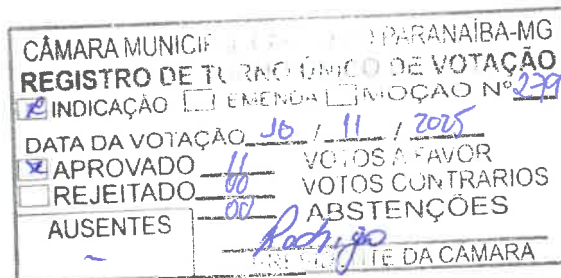 CÂMARA MUNICIP PARANAÍBA-MG
REGISTRO DE TURNO ÚNICO DE VOTAÇÃO
INDICAÇÃO EMENDA MOÇÃO Nº 279
DATA DA VOTAÇÃO 10 / 11 / 2025
x APROVADO 11 VOTOS A FAVOR
REJEITADO 00 VOTOS CONTRÁRIOS
00 ABSTENÇÕES
AUSENTES
-
Rodrigo
PRESIDENTE DA CÂMARA